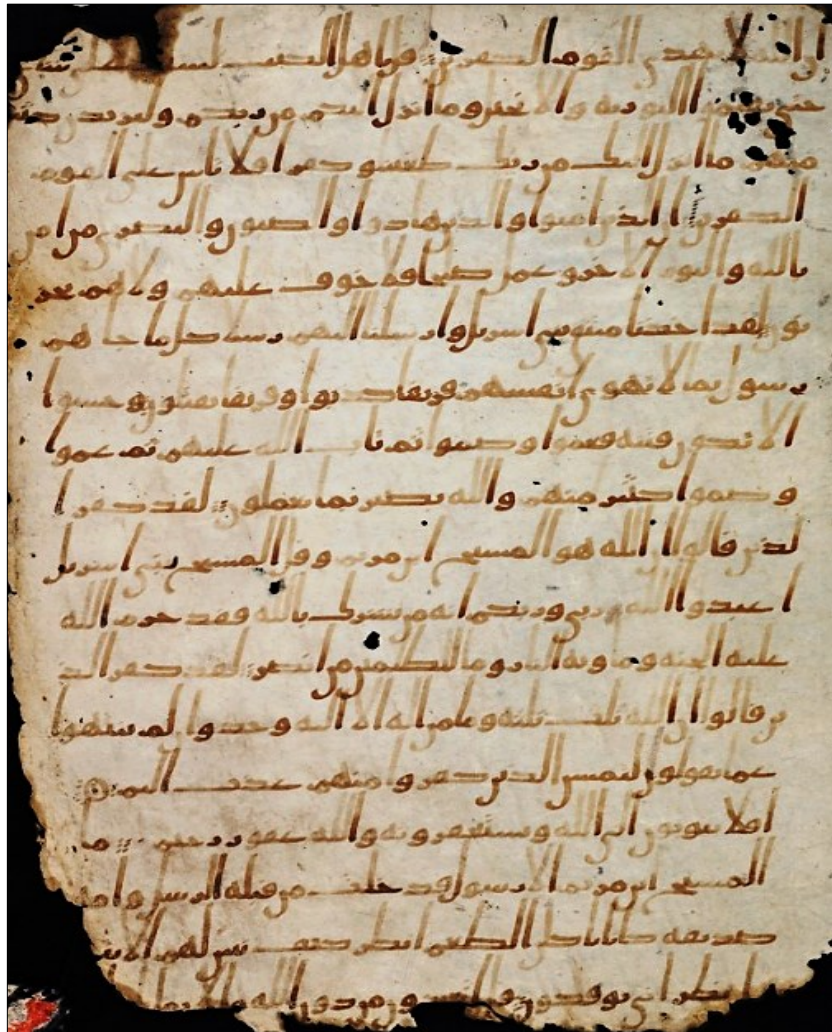 ان الله لا يهدى القوم الكفرين قل ياهل الكتب لستم على شى
حتى تقيموا التوريه والانجيل وما انزل اليكم من ربكم وليزيدن كثير
منهم ما انزل اليك من ربك طغينا وكفرا فلا تاس على القوم
الكفرين ان الذين امنوا والذين هادوا والصبون والنصرى من امن
بالله واليوم الاخر وعمل صلحا فلا خوف عليهم ولا هم يحز
نون لقد اخذنا ميثق بنى اسريل وارسلنا اليهم رسلا كلما جاهم
رسول بما لا تهوى انفسهم فريقا كذبوا وفريقا يقتلون وحسبوا
الا تكون فتنه فعموا وصموا ثم تاب الله عليهم ثم عموا
وصموا كثير منهم والله بصير بما يعملون لقد كفر ا
لذين قالوا ان الله هو المسيح ابن مريم وقل المسيح يبنى اسريل
اعبدوا الله ربى وربكم انه من يشرك بالله فقد حرم الله
عليه الجنه وماويه النار وما للظلمين من انصر لقد كفر الذ
ين قالوا ان الله ثلث ثلثه وما من اله الا اله وحد وان لم ينتهوا
عما يقولون ليمسن الذين كفروا منهم عذب اليم
افلا يتوبون الى الله ويستغفرونه والله غفور رحيم ما
المسيح ابن مريم الا رسول قد خلت من قبله الرسل وامه
صديقه كانا ياكلن الطعم انظر كيف نبين لهم الايت
انظر انى يوفكون قل اتعبدون من دون الله ما لا يملك